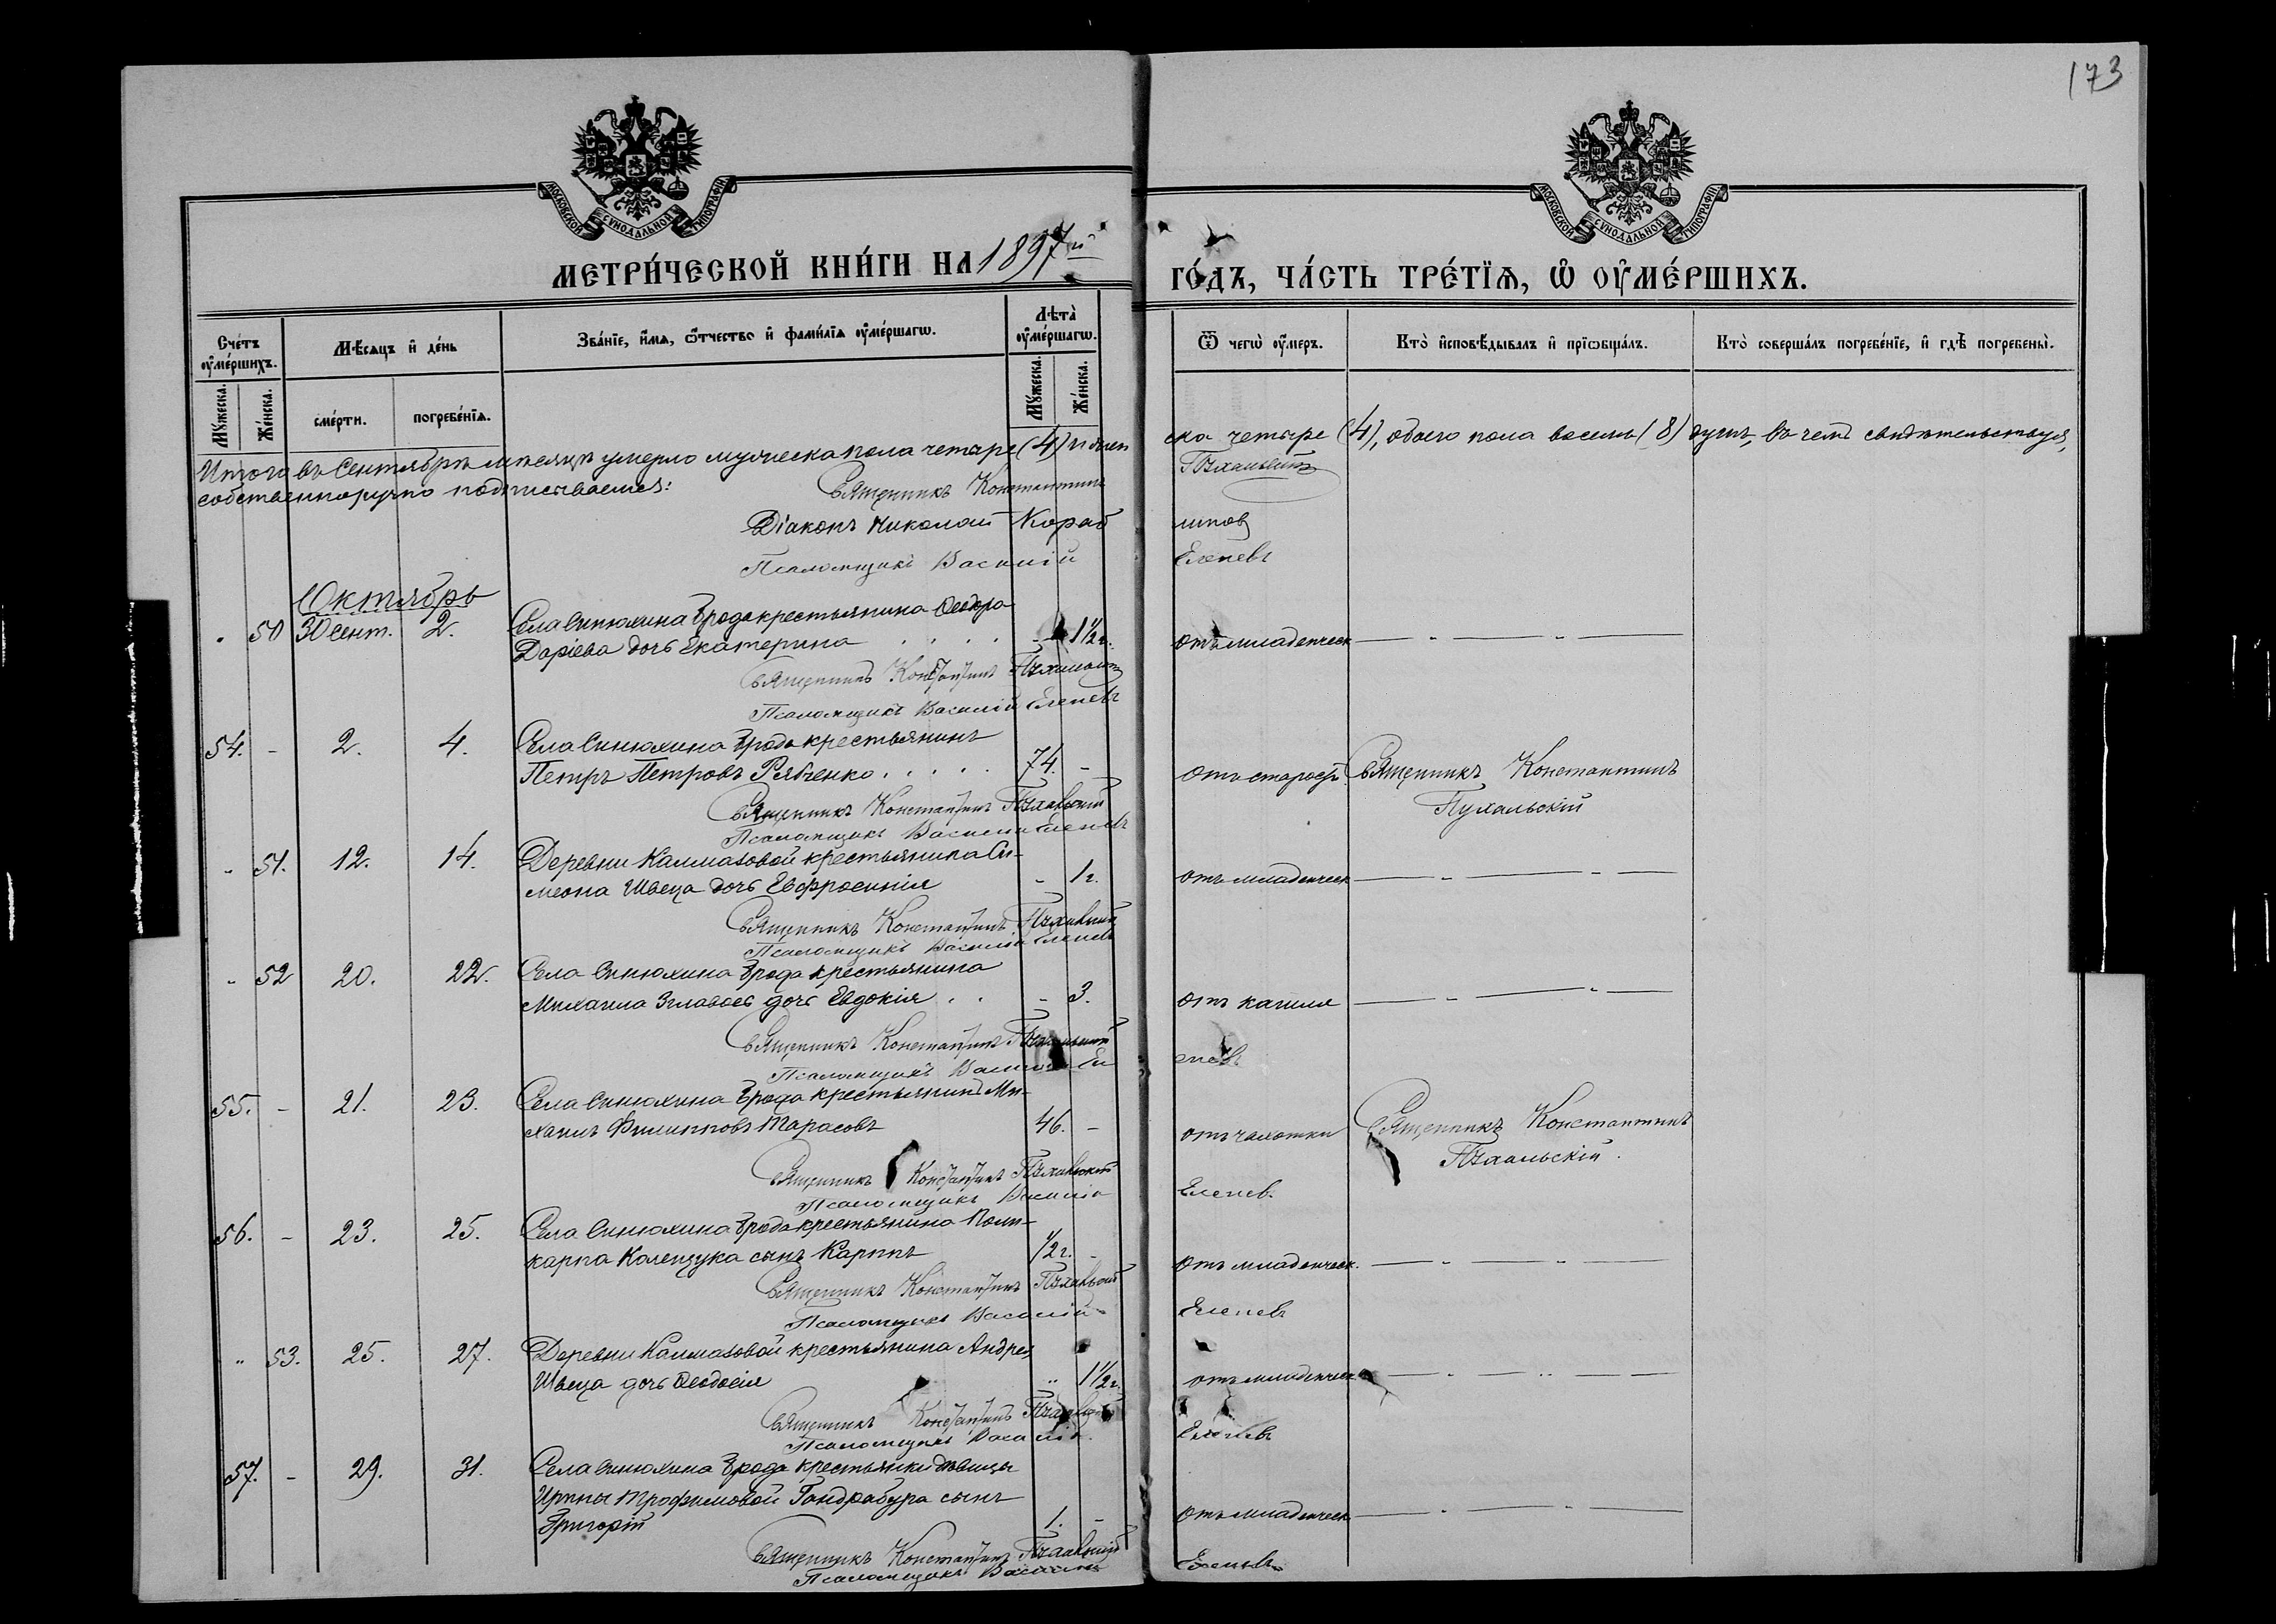 173
МОСКОВСКОЙ СѴНОДАЛЬНОЙ ТИПОГРАФІИ
МОСКОВСКОЙ СѴНОДАЛЬНОЙ ТИПОГРАФІИ
МЕТРИ́ЧЕСКОЙ КНИ́ГИ НА 1897й ГО́ДЪ, ЧА́СТЬ ТРЕ́ТІѦ, Ѡ ОУ҆МЕ́РШИХЪ.
Сче́тъ оу҆ме́ршихъ. Мѣ́сяцъ и҆ де́нь Зва́нїе, и҆́мѧ, ѻ҆́тчество и҆ фами́лїѧ оу҆ме́ршагѡ. Лѣ́та оу҆ме́ршагѡ. Ѿ чегѡ̀ оу҆́меръ. Кто̀ и҆сповѣ́дывалъ и҆ прїѡбща́лъ. Кто̀ соверша́лъ погребе́нїе, и҆ гдѣ̀ погребены̀.
Мꙋ́жеска. Же́нска. сме́рти. погребе́нїѧ. Мꙋ́жеска. Же́нска.
Итого въ Сентябрѣ мѣсяцѣ умерло мужеска пола четыре (4) и женска четыре (4), обоего пола восемь (8) душъ, въ чемъ свидѣтельствуя,
собственноручно подписываемся: Священникъ Константинъ Пухальскій
Діаконъ Николай
Псаломщикъ Василій Еленевъ
Октябрь
" 50 30 сент. 2. Села Синюхина Брода крестьянина Ѳеодора
Даріева дочь Екатерина . . . . - 1½ г. отъ младенческ — " — " —
Священникъ Константинъ Пухальскій
Псаломщикъ Василій Еленевъ
54. - 2. 4. Села Синюхина Брода крестьянинъ
Петръ Петровъ Рябченко . . . . . 74. - отъ старости Священникъ Константинъ
Пухальскій
Священникъ Константинъ Пухальскій
Псаломщикъ Василій Еленевъ
" 51. 12. 14. Деревни Калмазовой крестьянина Си-
меона Швеца дочь Евфросинія - 1 г. отъ младенческ — " — " —
Священникъ Константинъ Пухальскій
Псаломщикъ Василій Еленевъ
" 52 20. 22. Села Синюхина Брода крестьянина
Михаила дочь Евдокія . . - 3. отъ кашля — " — " —
Священникъ Константинъ Пухальскій
Псаломщикъ Василій Еленевъ
55. - 21. 23. Села Синюхина Брода крестьянинъ Ми-
хаилъ Филипповъ Тарасовъ 46. - отъ чахотки Священникъ Константинъ
Пухальскій.
Священникъ Константинъ Пухальскій
Псаломщикъ Василій Еленевъ
56. - 23. 25. Села Синюхина Брода крестьянина Поли-
карпа Колещука сынъ Карпъ ½ г. - отъ младенческ. — " — " —
Священникъ Константинъ Пухальскій
Псаломщикъ Василій Еленевъ
" 53. 25. 27. Деревни Калмазовой крестьянина Андрея
Швеца дочь Ѳеодосія " 1½ г. отъ младенческ. — " — " —
Священникъ Константинъ Пухальскій
Псаломщикъ Василій Еленевъ
57. - 29. 31. Села Синюхина Брода крестьянки дѣвицы
Ирины Трофимовой Гандрабура сынъ
Григорій 1. - отъ младенческ — " — " —
Священникъ Константинъ Пухальскій
Псаломщикъ Василій Еленевъ